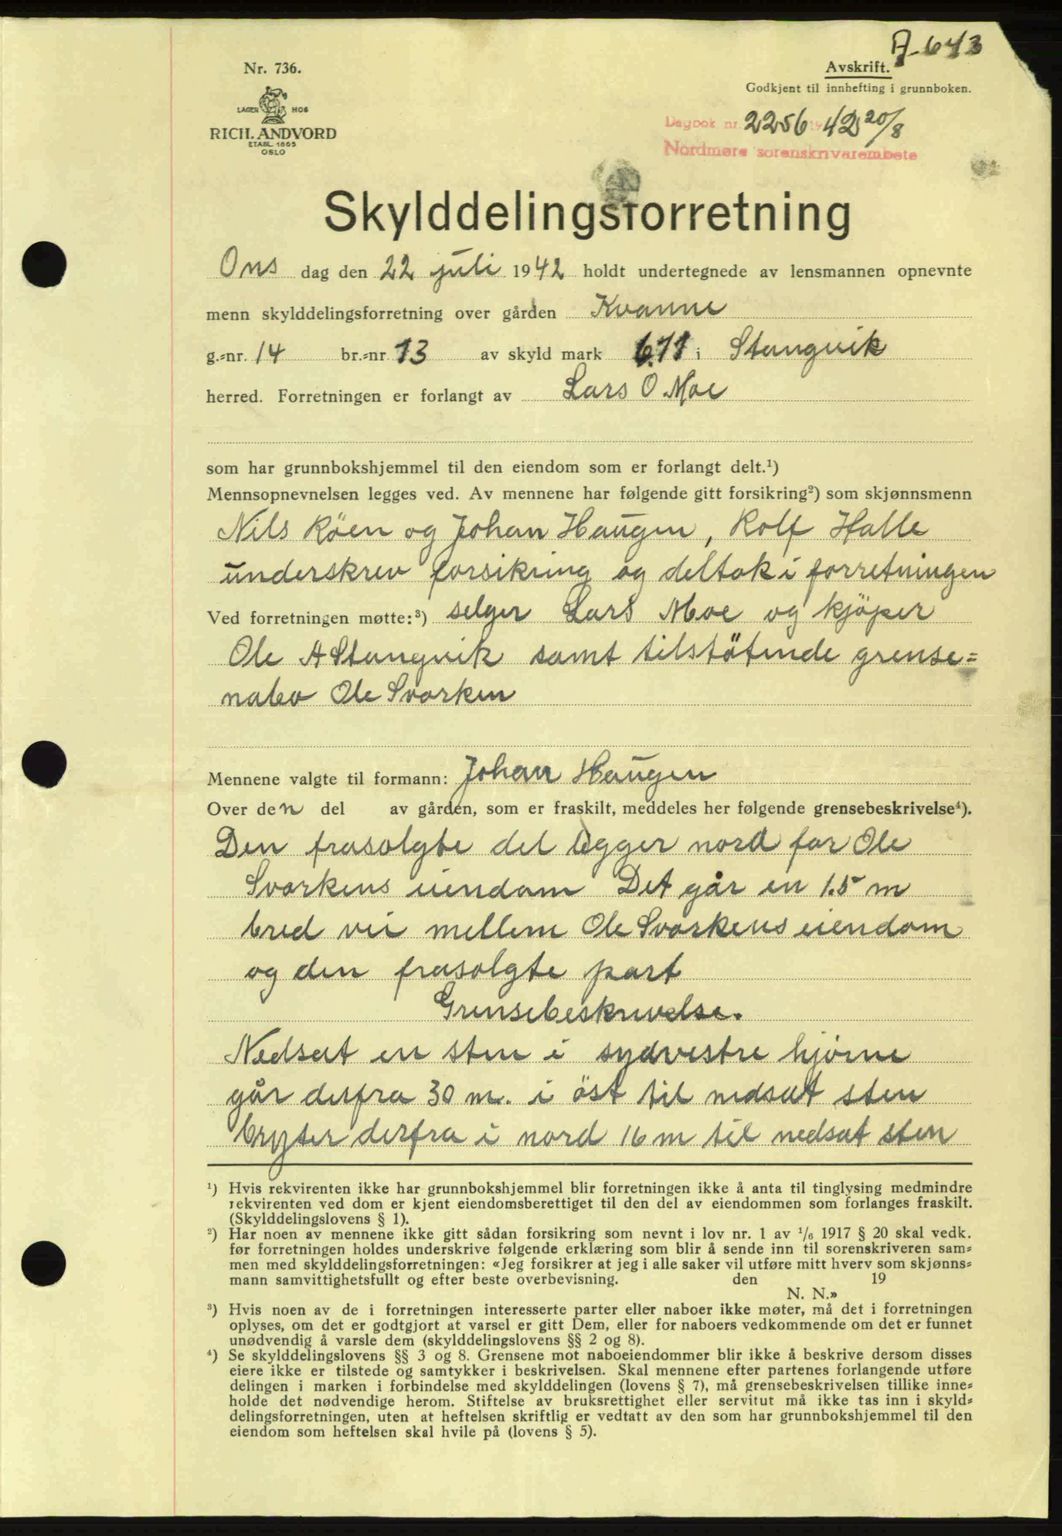 A-643
Nr. 736.
Avskrift.
Godkjent til innhefting i grunnboken.
LAGER HOS
RICH. ANDVORD
ETABL. 1865
OSLO
Dagbok nr. 2256 1942 20/8
Nordmøre sorenskriverembete
Skylddelingsforretning
Ons dag den 22 juli 1942 holdt undertegnede av lensmannen opnevnte
menn skylddelingsforretning over gården Kvanne
g.=nr. 14 br.=nr. 13 av skyld mark 6.71 i Stangvik
herred. Forretningen er forlangt av Lars O Moe
som har grunnbokshjemmel til den eiendom som er forlangt delt.¹)
Mennsopnevnelsen legges ved. Av mennene har følgende gitt forsikring²) som skjønnsmenn
Nils Röen og Johan Haugen, Rolf Halle
underskrev forsikring og deltok i forretningen
Ved forretningen møtte:³) selger Lars Moe og kjöper
Ole A Stangvik samt tilstötende grense=
nabo Ole Svorken
Mennene valgte til formann: Johan Haugen
Over den del av gården, som er fraskilt, meddeles her følgende grensebeskrivelse⁴).
Den frasolgte del ligger nord for Ole
Svorkens eiendom Det går en 1.5 m
bred vei mellem Ole Svorkens eiendom
og den frasolgte part
Grensebeskrivelse.
Nedsat en sten i sydvestre hjörne
går derfra 30 m. i öst til nedsat sten
bryter derfra i nord 16 m til nedsat sten
¹) Hvis rekvirenten ikke har grunnbokshjemmel blir forretningen ikke å anta til tinglysing medmindre
rekvirenten ved dom er kjent eiendomsberettiget til den del av eiendommen som forlanges fraskilt.
(Skylddelingslovens § 1).
²) Har noen av mennene ikke gitt sådan forsikring som nevnt i lov nr. 1 av ¹/₆ 1917 § 20 skal vedk.
før forretningen holdes underskrive følgende erklæring som blir å sende inn til sorenskriveren sam=
men med skylddelingsforretningen: «Jeg forsikrer at jeg i alle saker vil utføre mitt hverv som skjønns=
mann samvittighetsfullt og efter beste overbevisning. den 19
N. N.»
³) Hvis noen av de i forretningen interesserte parter eller naboer ikke møter, må det i forretningen
oplyses, om det er godtgjort at varsel er gitt Dem, eller for naboers vedkommende om det er funnet
unødvendig å varsle dem (skylddelingslovens §§ 2 og 8).
⁴) Se skylddelingslovens §§ 3 og 8. Grensene mot naboeiendommer blir ikke å beskrive dersom disses
eiere ikke er tilstede og samtykker i beskrivelsen. Skal mennene efter partenes forlangende utføre
delingen i marken i forbindelse med skylddelingen (lovens § 7), må grensebeskrivelsen tillike inne=
holde det nødvendige herom. Stiftelse av bruksrettighet eller servitut må ikke tas inn i skyld=
delingsforretningen, uten at heftelsen skriftlig er vedtatt av den som har grunnbokshjemmel til den
eiendom som heftelsen skal hvile på (lovens § 5).